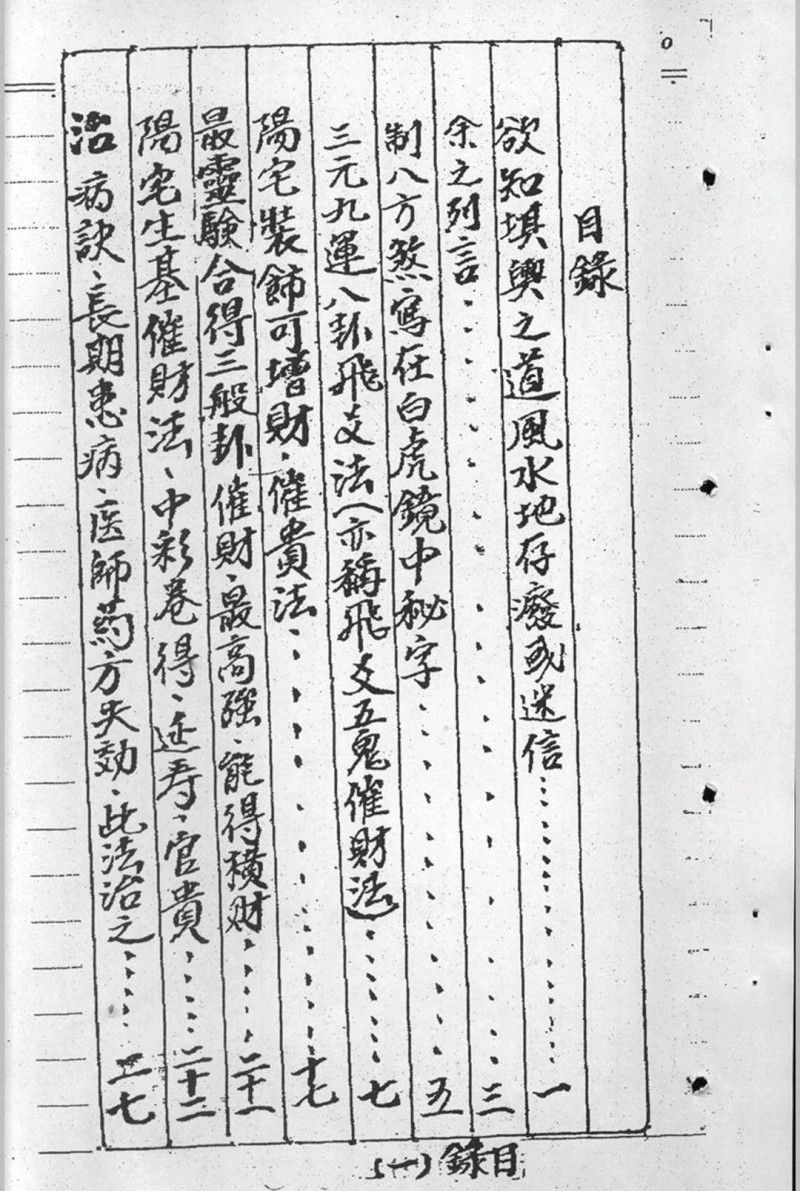 目錄
欲知堪輿之道風水地存廢或迷信…………一
余之列言…………三
制八方煞寫在白虎鏡中秘字…………五
三元九運八卦飛爻法(亦稱飛爻五鬼催財法)…………七
陽宅裝飾可增財、催貴法…………十七
最靈驗合得三般卦催財、最高強、能得橫财……二十一
陽宅生基催財法、中彩卷得、延寿、官貴……二十二
治病訣、長期患病、医師药方失効、此法治之……二七
目錄(一)